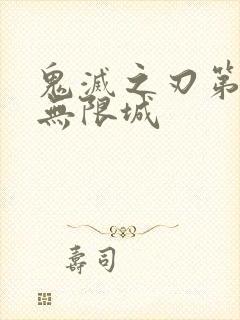 鬼滅之刃第
無限城
壽司